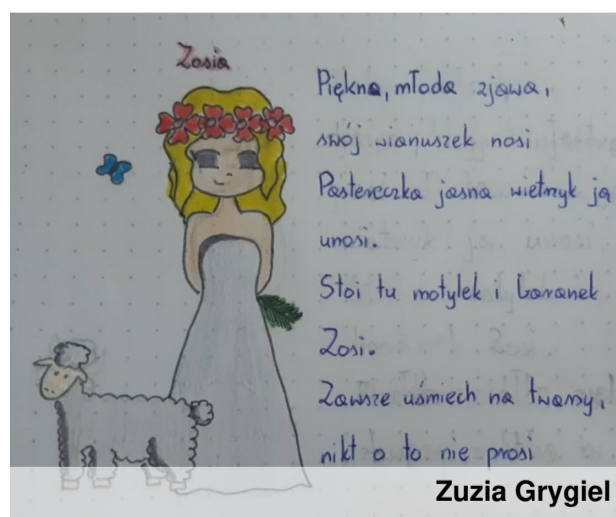 Zosia
Piękna, młoda zjawa,
swój wianuszek nosi
Pastereczka jasna wietrzyk ją
unosi.
Stoi tu motylek i baranek
Zosi.
Zawsze uśmiech na twarzy,
nikt o to nie prosi
Zuzia Grygiel